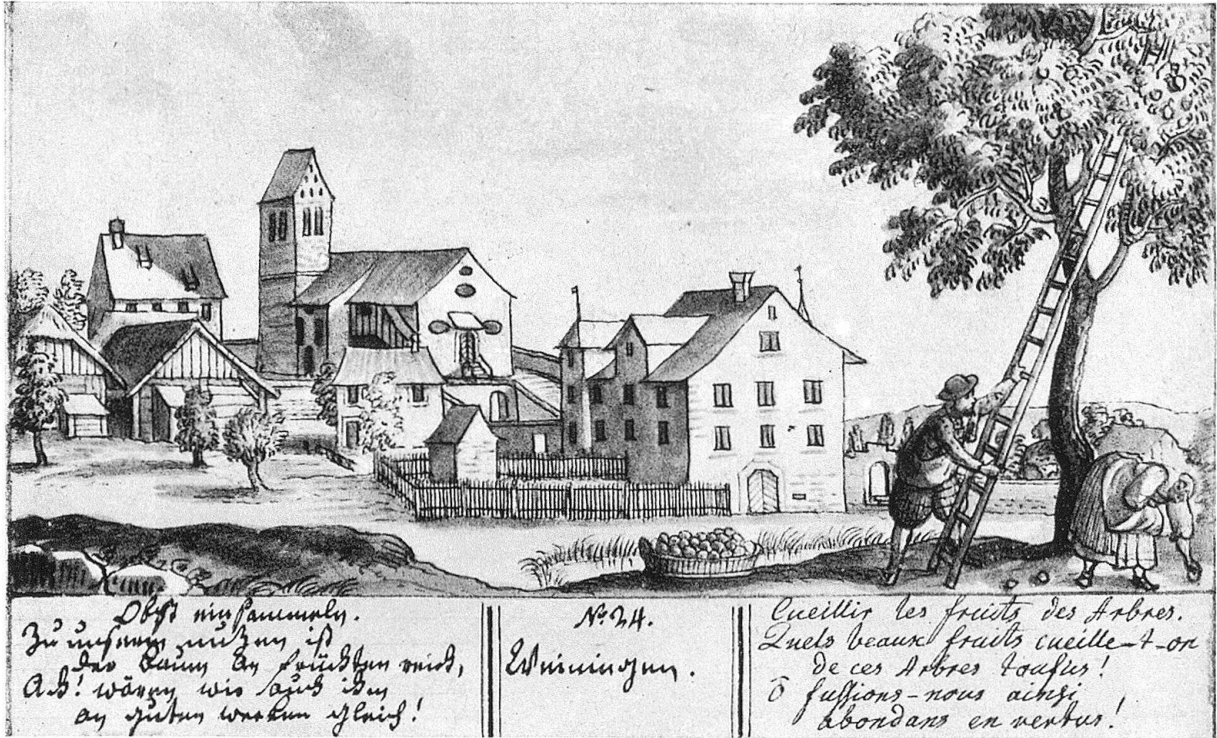 Obst einsammeln.
Zu unserem nutzen ist
der Baum an früchten reich,
Ach! wären wir auch ihm
an guten wercken gleich!
No. 24.
Weiningen.
Cueillir les fruits des Arbres.
Quels beaux fruits cueille-t-on
de ces Arbres toufus!
ô fussions-nous ainsi
abondans en vertus!